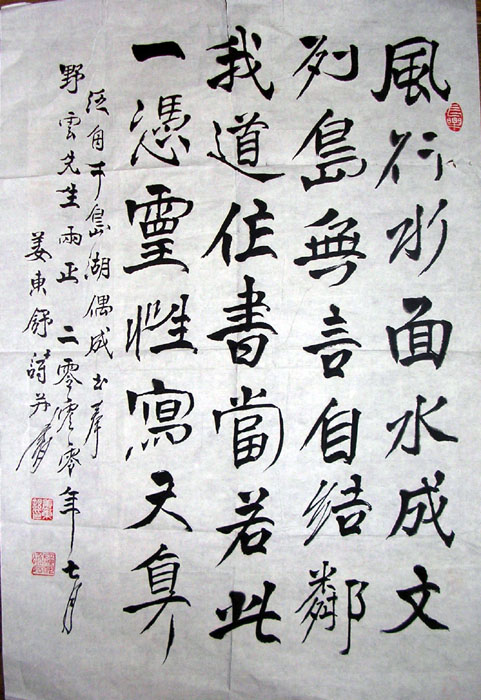 風行水面水成文
列島無言自結鄰
我道作書當若此
一憑靈性寫天真
泛舟千島湖偶成書奉
野雲先生兩正 二零零零年七月
姜東舒詩并書